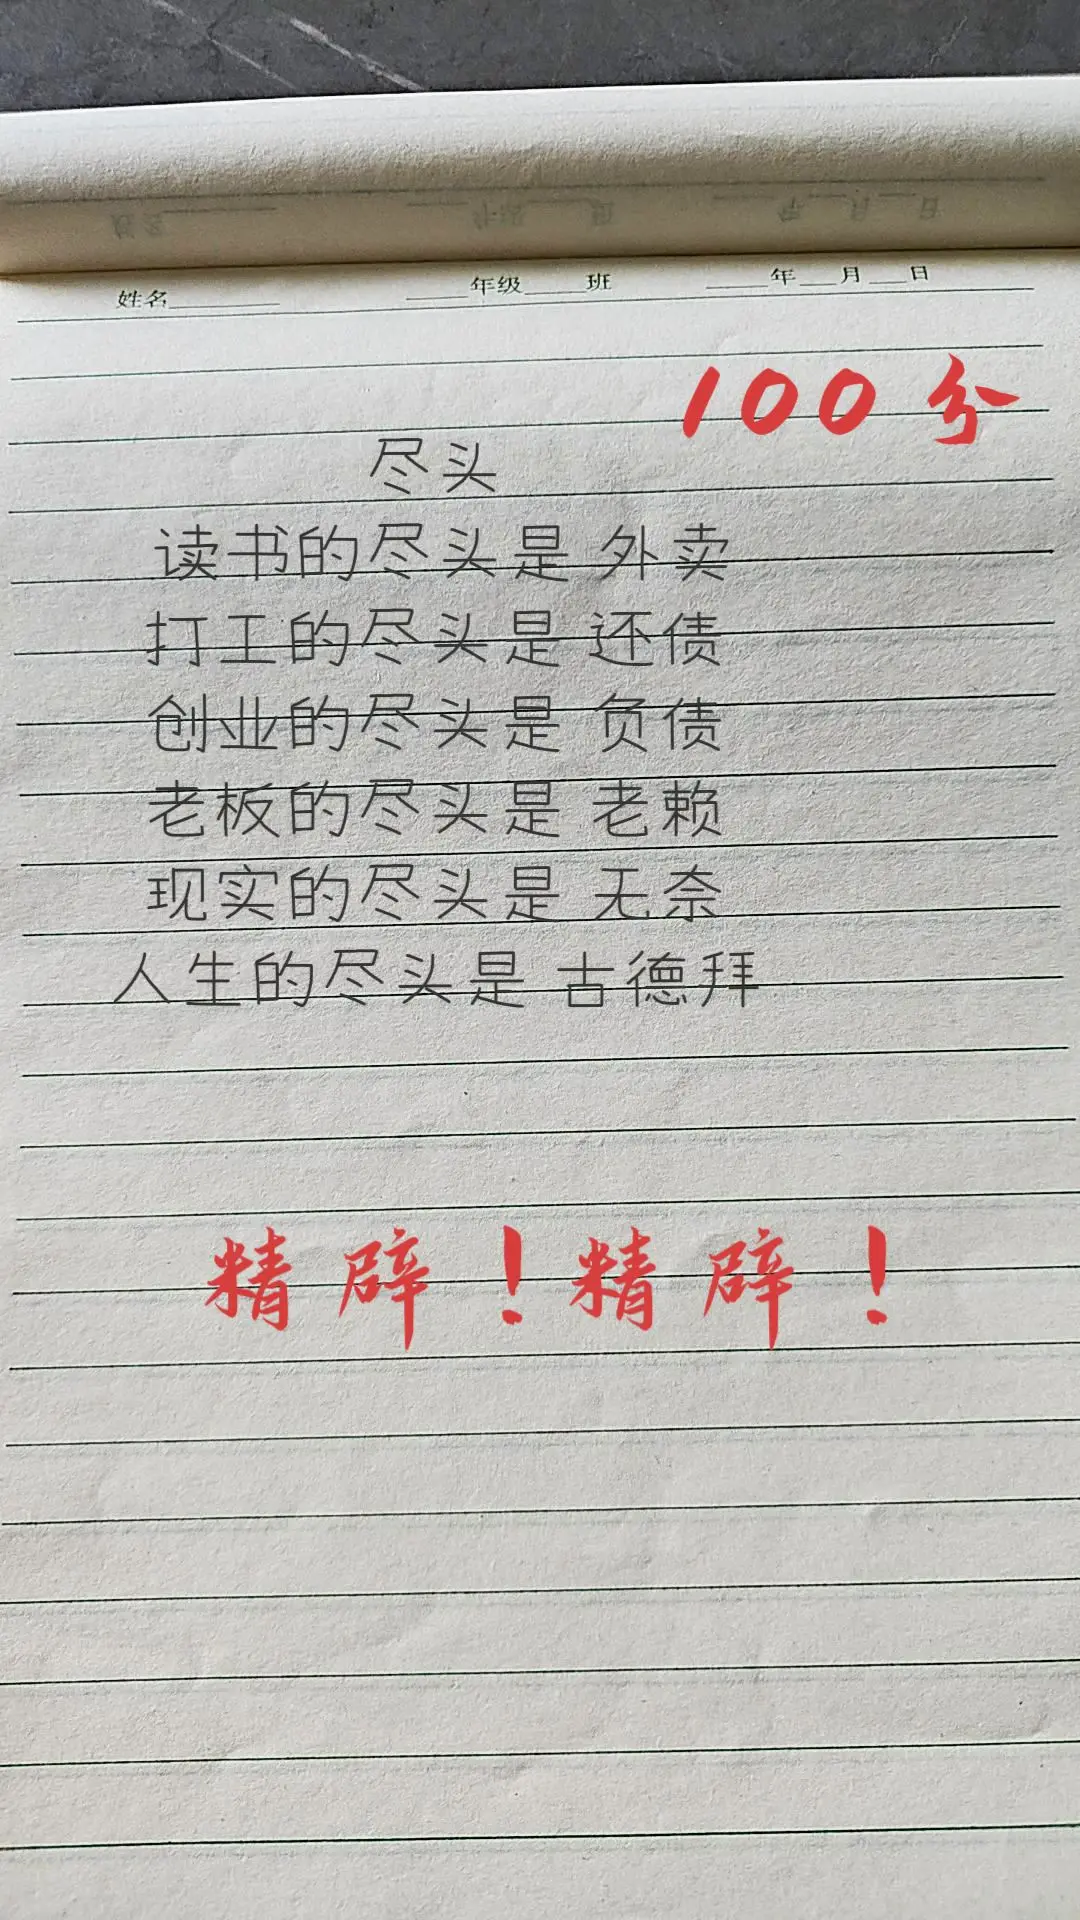 姓名______ ____年级____班 ____年__月__日
100分
尽头
读书的尽头是 外卖
打工的尽头是 还债
创业的尽头是 负债
老板的尽头是 老赖
现实的尽头是 无奈
人生的尽头是 古德拜
精辟！精辟！